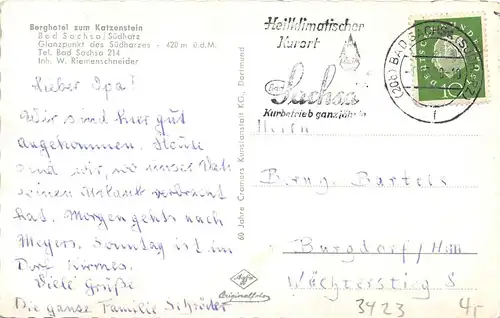 Berghotel zum Katzenstein
Bad Sachsa/Südharz
Glanzpunkt des Südharzes - 420 m ü.d.M.
Tel. Bad Sachsa 214
Inh. W. Riemenschneider
Lieber Opa!
Wir sind hier gut
angekommen. Heute
sind wir, wo unser Vati
seinen Urlaub verbracht
hat. Morgen gehts nach
Meyers. Sonntag ist im
Dorf Kirmes.
Viele Grüße
Die ganze Familie Schröder
60 Jahre Cramers Kunstanstalt KG, Dortmund
Agfa
Originalfoto
Heilklimatischer
Kurort
Bad
Sachsa
Kurbetrieb ganzjährig
BAD SACHSA (SÜDH
f
DEUTSCHE
10
Herrn
Bartels
Burgdorf/Hann
Wächterstieg 8
3423
4,-